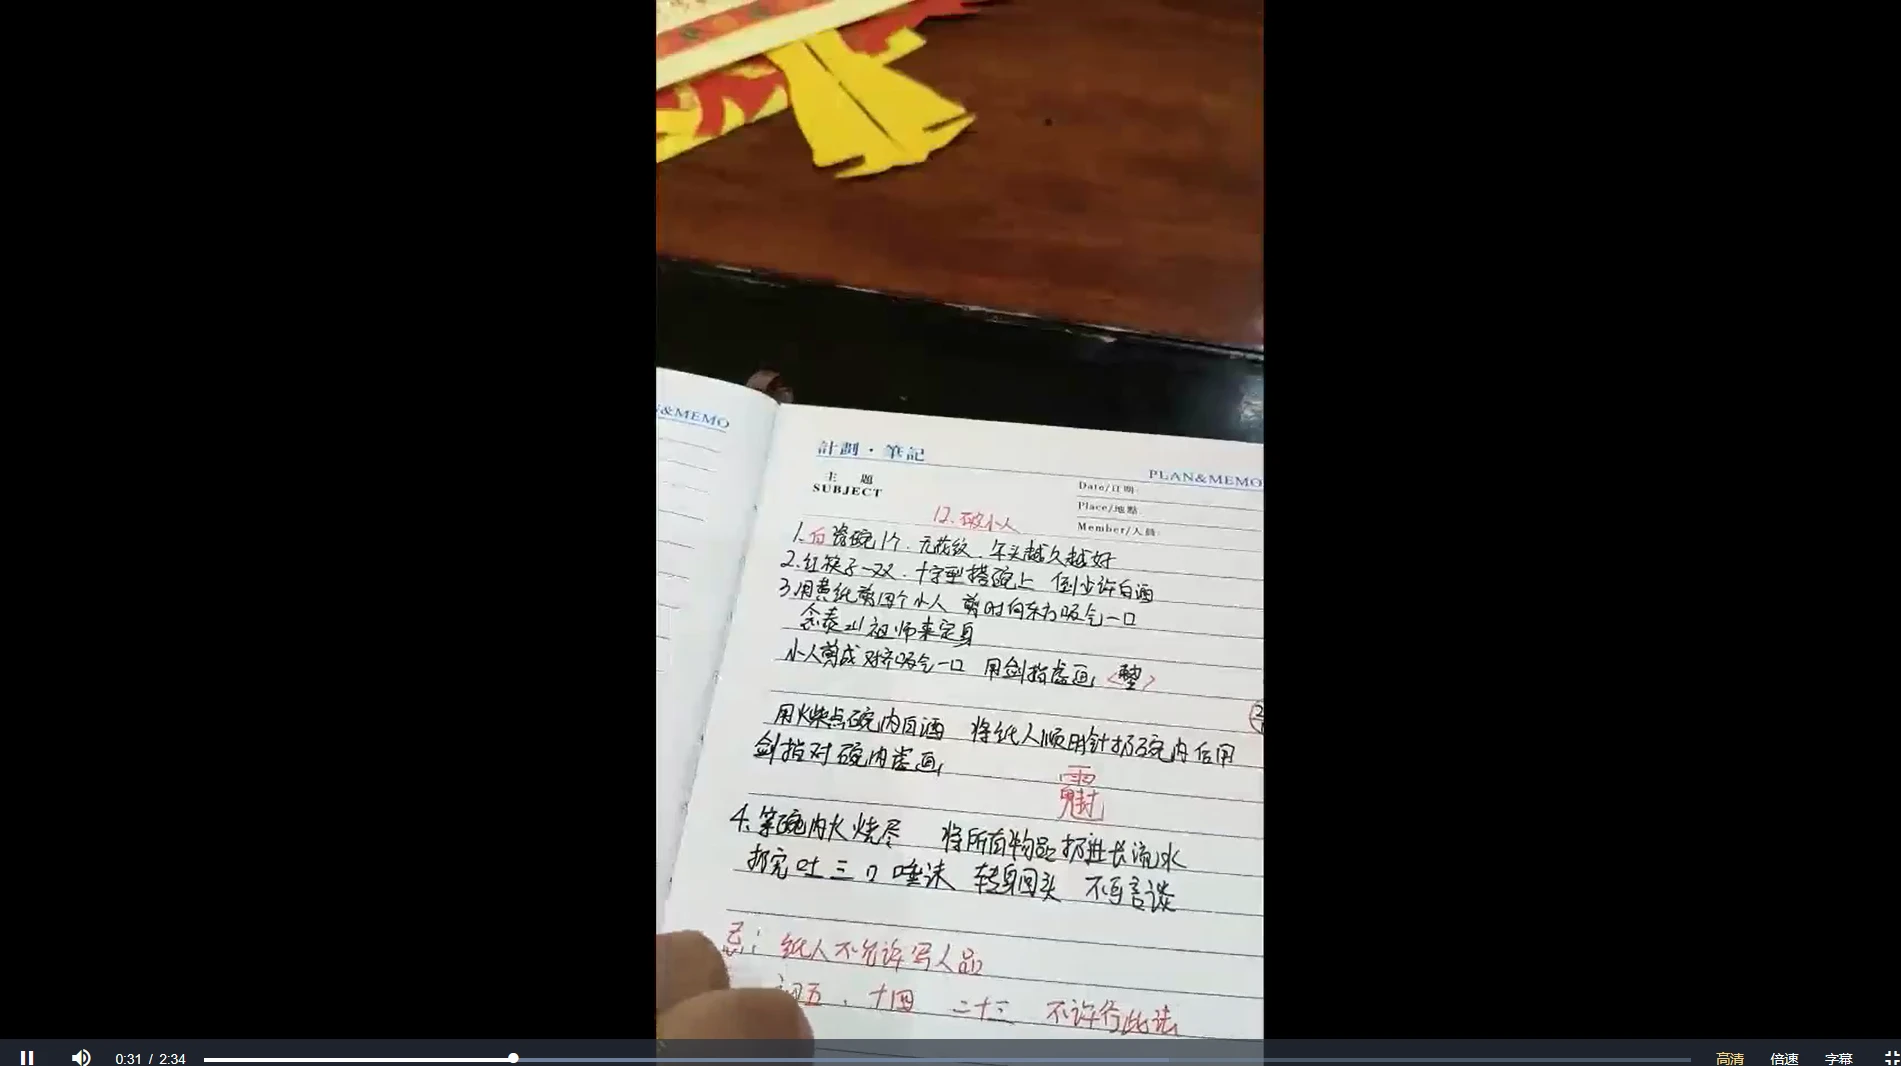 N&MEMO
計劃·筆記
PLAN&MEMO
主題
SUBJECT
Date/日期:
Place/地點
Member/人員:
12、破小人
1.白瓷碗1个.无花纹.年头越久越好
2.红筷子一双.十字型搭碗上 倒少许白酒
3.用黄纸剪四个小人 剪时向东方吸气一口
念泰山祖师来定身
小人剪成对齐吸气一口 用剑指虚画
用火柴点碗内白酒 将纸人顺时针扔碗内后用
剑指对碗内虚画
4.等碗内火烧尽 将所有物品扔进长流水
扔完吐三口唾沫 转身回头 不与言谈
忌: 纸人不允许写人名
初五.十四 二十三 不许行此法
0:31 / 2:34
高清 倍速 字幕